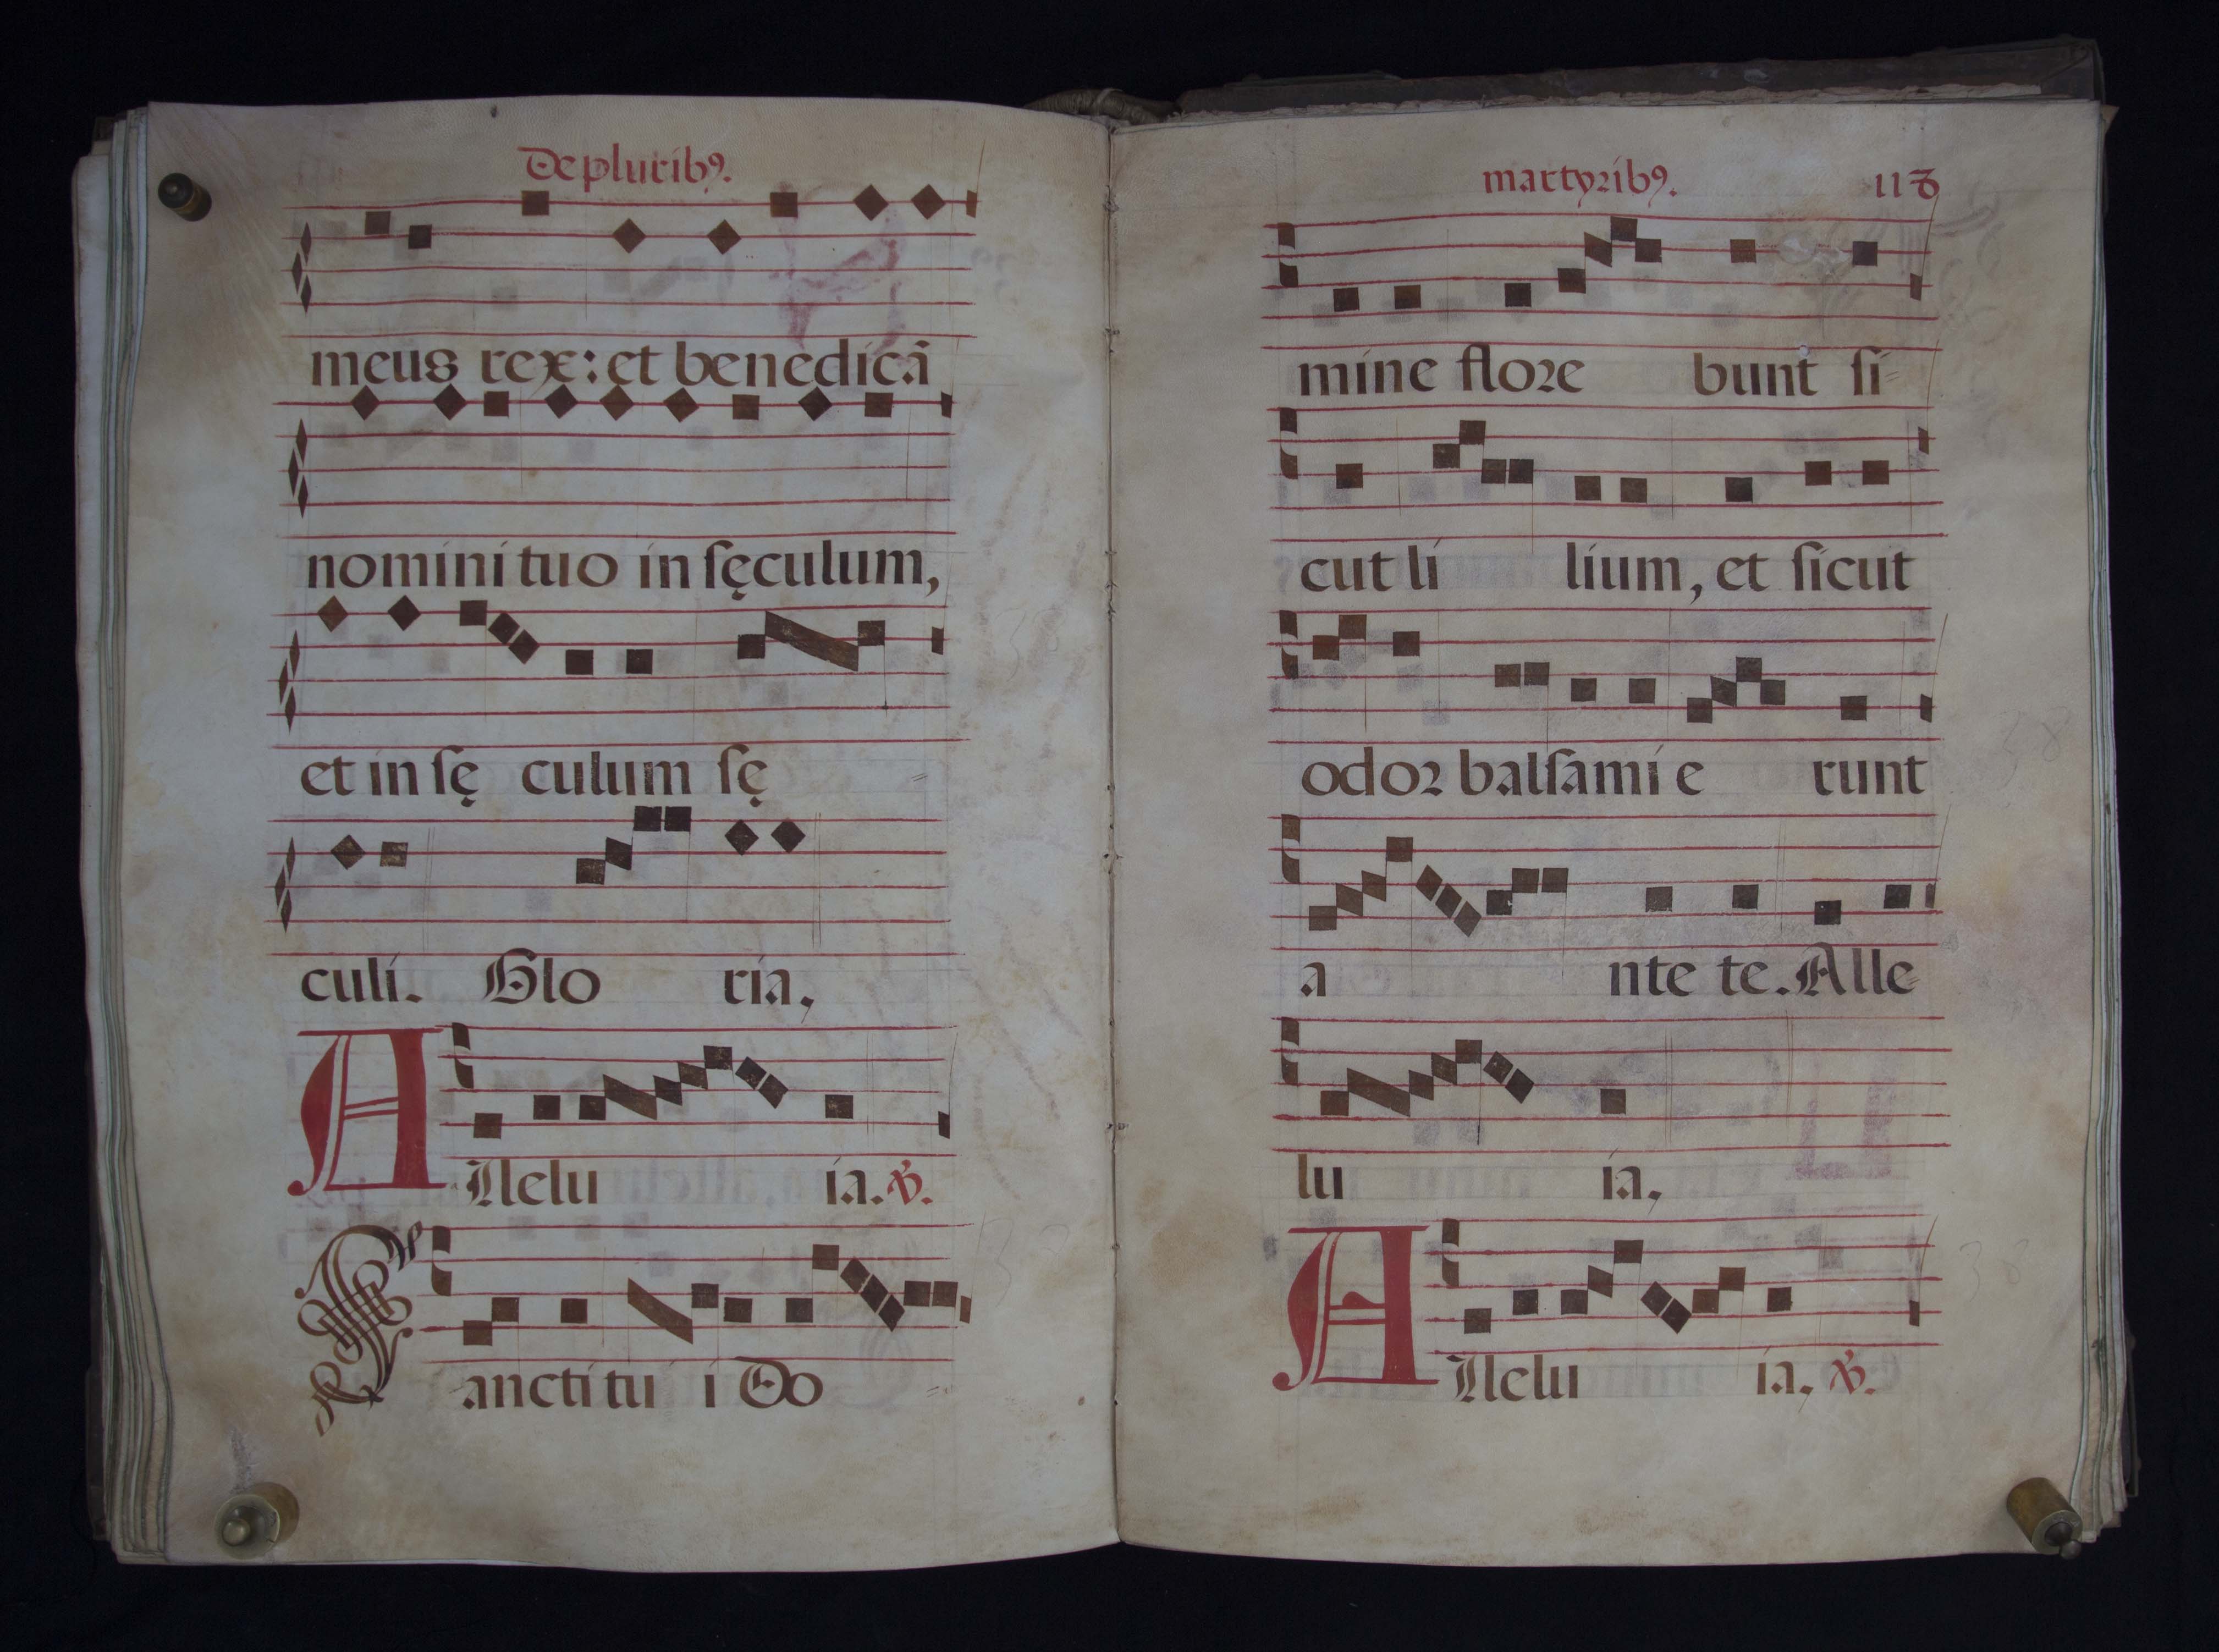 De pluribꝰ.
meus rex: et benedicā
nomini tuo in sęculum,
et in sę culum sę =
culi. Glo ria,
Allelu ia. ℣.
Sancti tui Do =
martyribꝰ. 118
mine flore bunt si=
cut li lium, et sicut
odor balsami e runt
a nte te. Alle=
lu ia,
Allelu ia, ℣.